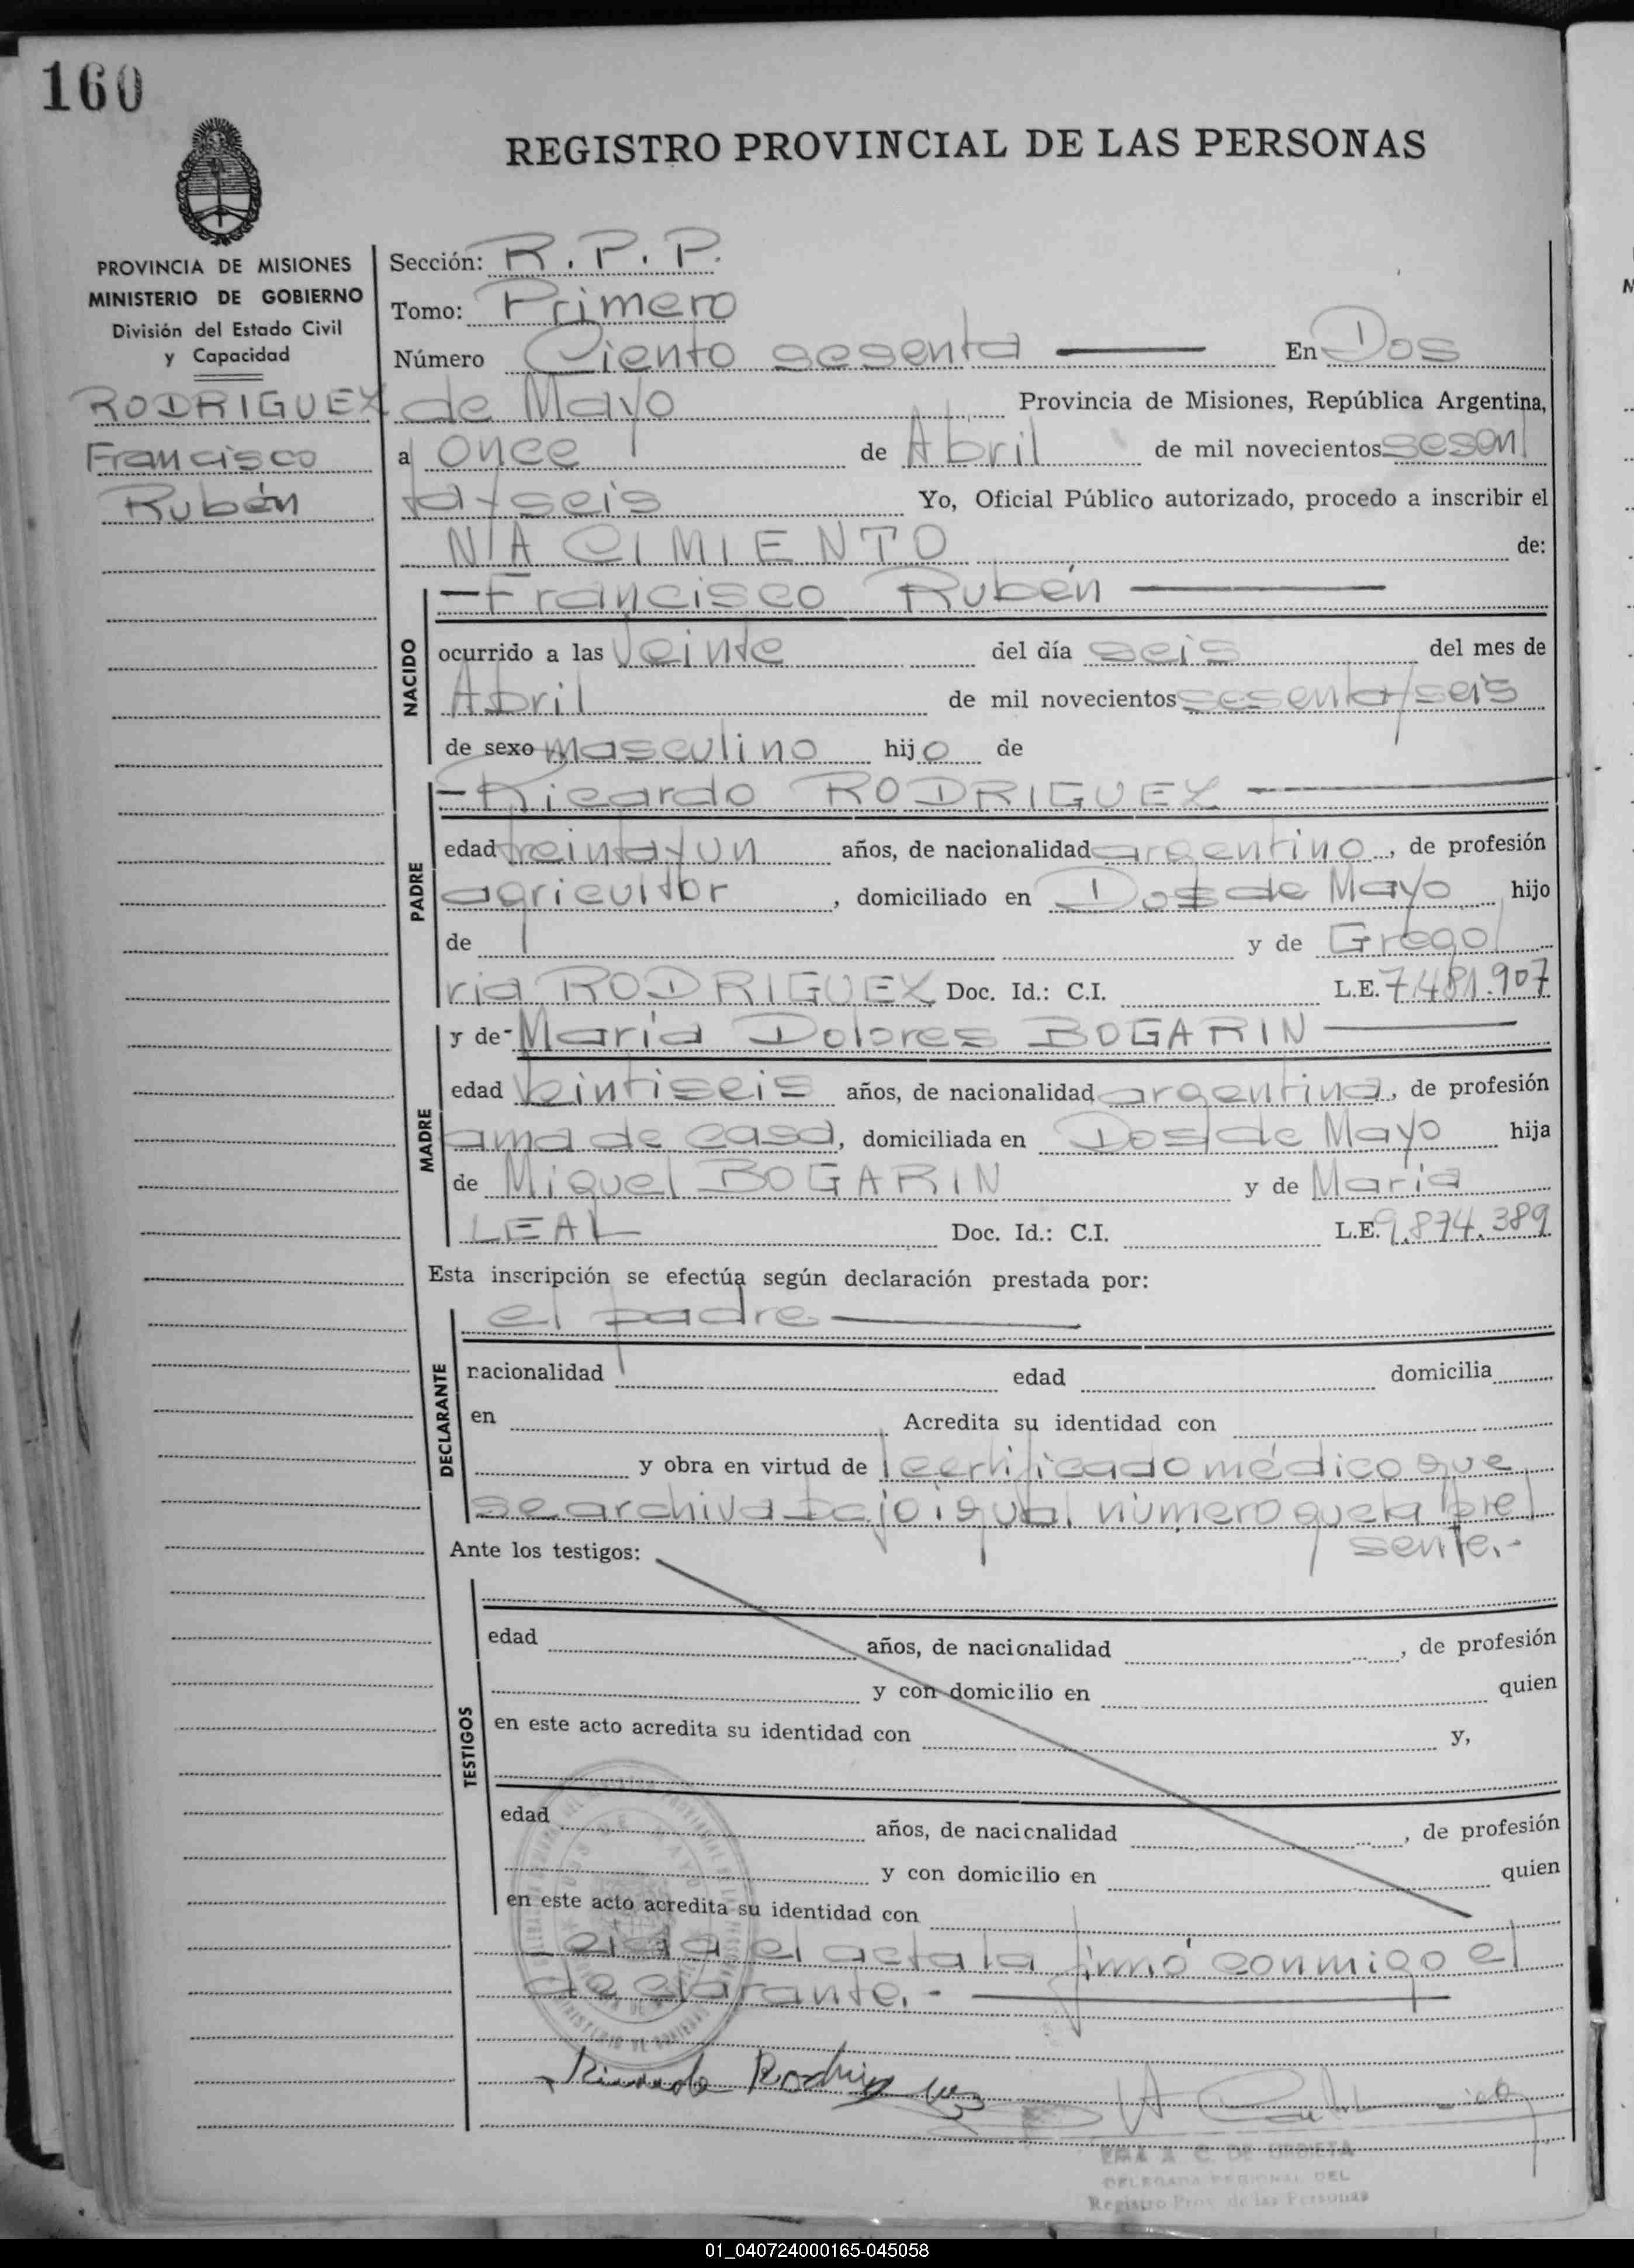 160
REGISTRO PROVINCIAL DE LAS PERSONAS
PROVINCIA DE MISIONES
MINISTERIO DE GOBIERNO
División del Estado Civil
y Capacidad
RODRIGUEZ
Francisco
Rubén
Sección: R.P.P.
Tomo: Primero
Número Ciento sesenta — En Dos
de Mayo Provincia de Misiones, República Argentina,
a once de Abril de mil novecientos sesen
ta y seis Yo, Oficial Público autorizado, procedo a inscribir el
NACIMIENTO de:
NACIDO
— Francisco Rubén —
ocurrido a las veinte del día seis del mes de
Abril de mil novecientos sesenta y seis
de sexo masculino hijo de
PADRE
— Ricardo RODRIGUEZ —
edad treinta y un años, de nacionalidad argentino, de profesión
agricultor, domiciliado en Dos de Mayo hijo
de y de Grego
ria RODRIGUEZ Doc. Id.: C.I. L.E. 7.481.907
MADRE
y de - María Dolores BOGARIN —
edad veintiseis años, de nacionalidad argentina, de profesión
ama de casa, domiciliada en Dos de Mayo hija
de Miguel BOGARIN y de María
LEAL Doc. Id.: C.I. L.E. 9.874.389
Esta inscripción se efectúa según declaración prestada por:
DECLARANTE
el padre —
nacionalidad edad domicilia
en Acredita su identidad con
y obra en virtud de certificado médico que
se archiva bajo igual número que la pre
sente.-
Ante los testigos:
TESTIGOS
edad años, de nacionalidad , de profesión
y con domicilio en quien
en este acto acredita su identidad con y,
edad años, de nacionalidad , de profesión
y con domicilio en quien
en este acto acredita su identidad con
Leida el acta la firmó conmigo el
declarante.- —
Ricardo Rodriguez
EMA A. C. DE URBIETA
DELEGADA REGIONAL DEL
Registro Prov. de las Personas
01_040724000165-045058